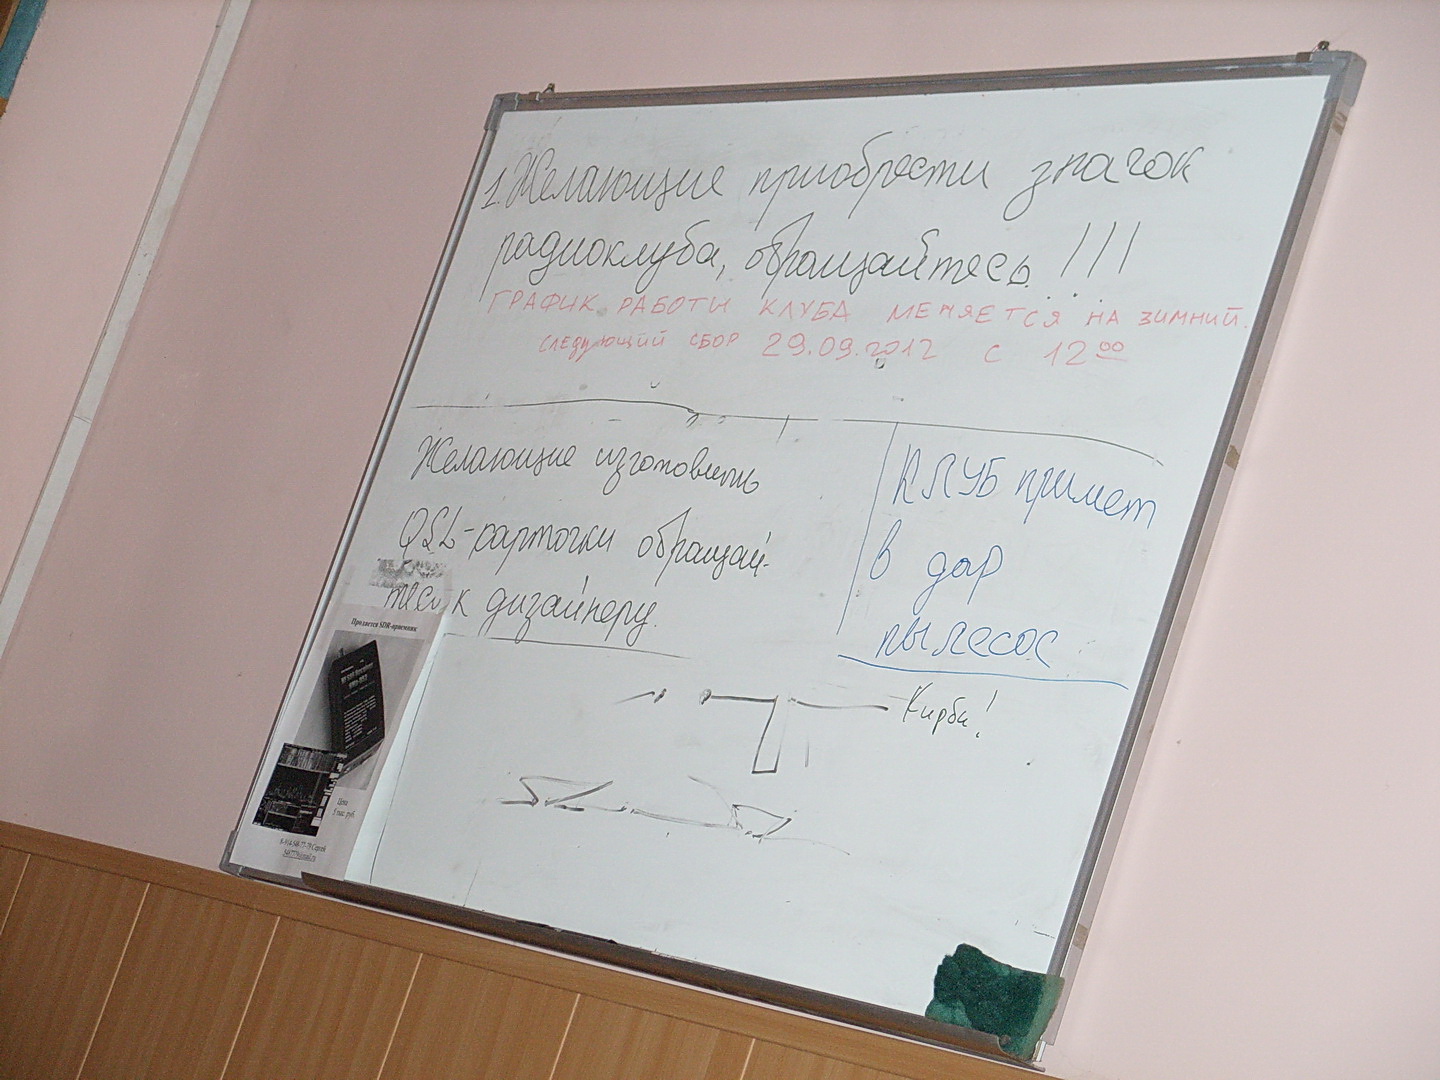 1. Желающие приобрести значок
радиоклуба, обращайтесь!!!
ГРАФИК РАБОТЫ КЛУБА МЕНЯЕТСЯ НА ЗИМНИЙ.
СЛЕДУЮЩИЙ СБОР 29.09.2012 С 12 00
Желающие изготовить
QSL-карточки обращай-
тесь к дизайнеру.
КЛУБ примет
в дар
пылесос
Кирби!
Продается SDR-приемник
Цена
5 тыс. руб.